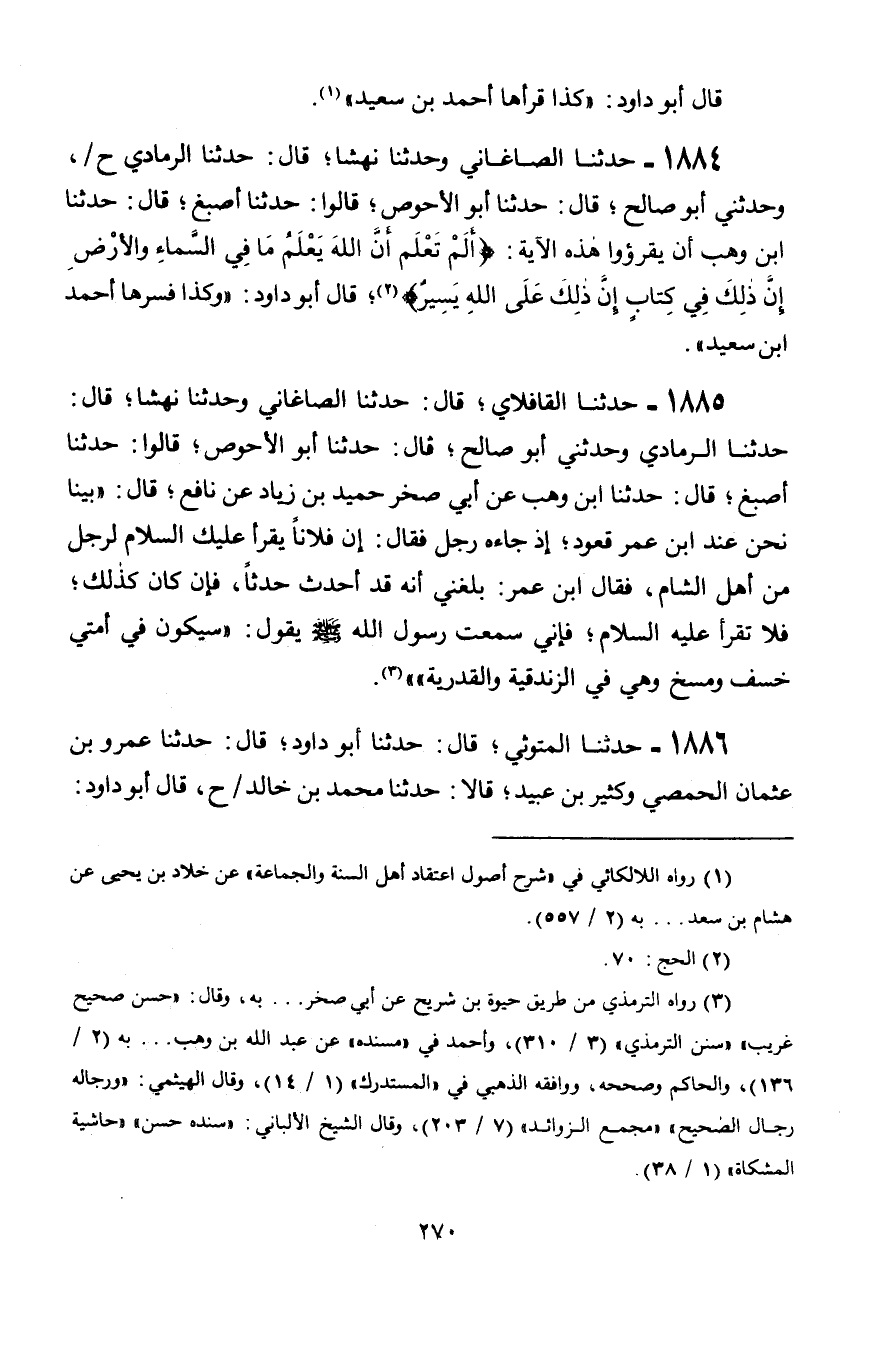 قال أبو داود: «كذا قرأها أحمد بن سعيد»(١).
١٨٨٤ ـ حدثنا الصاغاني وحدثنا نهشا؛ قال: حدثنا الرمادي ح/،
وحدثني أبو صالح؛ قال: حدثنا أبو الأحوص؛ قالوا: حدثنا أصبغ؛ قال: حدثنا
ابن وهب أن يقرؤوا هٰذه الآية: ﴿أَلَمْ تَعْلَم أَنَّ اللهَ يَعْلَمُ مَا فِي السَّماءِ والأرْضِ
إِنَّ ذٰلِكَ فِي كِتابٍ إِنَّ ذٰلِكَ عَلَى اللهِ يَسِيرٌ﴾(٢)؛ قال أبو داود: «وكذا فسرها أحمد
ابن سعيد».
١٨٨٥ ـ حدثنا القافلاي؛ قال: حدثنا الصاغاني وحدثنا نهشا؛ قال:
حدثنا الرمادي وحدثني أبو صالح؛ قال: حدثنا أبو الأحوص؛ قالوا: حدثنا
أصبغ؛ قال: حدثنا ابن وهب عن أبي صخر حميد بن زياد عن نافع؛ قال: «بينا
نحن عند ابن عمر قعود؛ إذ جاءه رجل فقال: إن فلاناً يقرأ عليك السلام لرجل
من أهل الشام، فقال ابن عمر: بلغني أنه قد أحدث حدثاً، فإن كان كذٰلك؛
فلا تقرأ عليه السلام؛ فإني سمعت رسول الله ﷺ يقول: «سيكون في أمتي
خسف ومسخ وهي في الزندقية والقدرية»»(٣).
١٨٨٦ ـ حدثنا المتوثي؛ قال: حدثنا أبو داود؛ قال: حدثنا عمرو بن
عثمان الحمصي وكثير بن عبيد؛ قالا: حدثنا محمد بن خالد/ ح، قال أبو داود:
(١) رواه اللالكائي في «شرح أصول اعتقاد أهل السنة والجماعة» عن خلاد بن يحيى عن
هشام بن سعد... به (٢ / ٥٥٧).
(٢) الحج: ٧٠.
(٣) رواه الترمذي من طريق حيوة بن شريح عن أبي صخر... به، وقال: «حسن صحيح
غريب» «سنن الترمذي» (٣ / ٣١٠)، وأحمد في «مسنده» عن عبد الله بن وهب... به (٢ /
١٣٦)، والحاكم وصححه، ووافقه الذهبي في «المستدرك» (١ / ١٤)، وقال الهيثمي: «ورجاله
رجال الصحيح» «مجمع الزوائد» (٧ / ٢٠٣)، وقال الشيخ الألباني: «سنده حسن» «حاشية
المشكاة» (١ / ٣٨).
٢٧٠